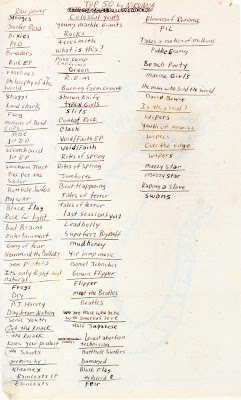 TOP 50 by NIRVANA
Raw power
Stooges
Surfer Rosa
Pixies
Pod
Breeders
Pink EP
Vaselines
Philosophy of the world
Shaggs
Land shark
Fang
millions of Dead Cops
MDC
1st EP
Scratch Acid
1st EP
Saccharine Trust
Pee Pee the Sailor
Butthole Surfers
My war
Black Flag
Rock for light
Bad Brains
Entertainment
Gang of four
Nevermind the Bollocks
Sex Pistols
Its only Right and natural
Frogs
Dry
P.J. Harvey
Daydream Nation
Sonic Youth
Get the Knack
the Knack
Know your product
the Saints
Kleenex
Raincoats LP
Raincoats
Colossal Youth
young marble Giants
Rocks
Aerosmith
what is this?
Green
R.E.M.
Burning farm
Shonen Knife
Typical Girls
Slits
Combat Rock
Clash
Void/Faith EP
Void/Faith
Rites of Spring
Rites of Spring
Jamboree
Beat Happening
Tales of terror
Tales of terror
last sessions vol 1
Leadbelly
Superfuzz Bigmuff
mudhoney
Yip jump music
Daniel Johnston
Generic Flipper
Flipper
meet the Beatles
Beatles
we are those who ache with amorous love
Half Japanese
Locust abortion technician
Butthole Surfers
Damaged
Black Flag
Fear
Flowers of Romance
PiL
Takes a nation of millions
Public Enemy
Beach Party
marine Girls
the man who sold the world
David Bowie
Is this real?
Wipers
Youth of America
Wipers
Over the edge
wipers
mazzy star
mazzy star
Raping a slave
Swans